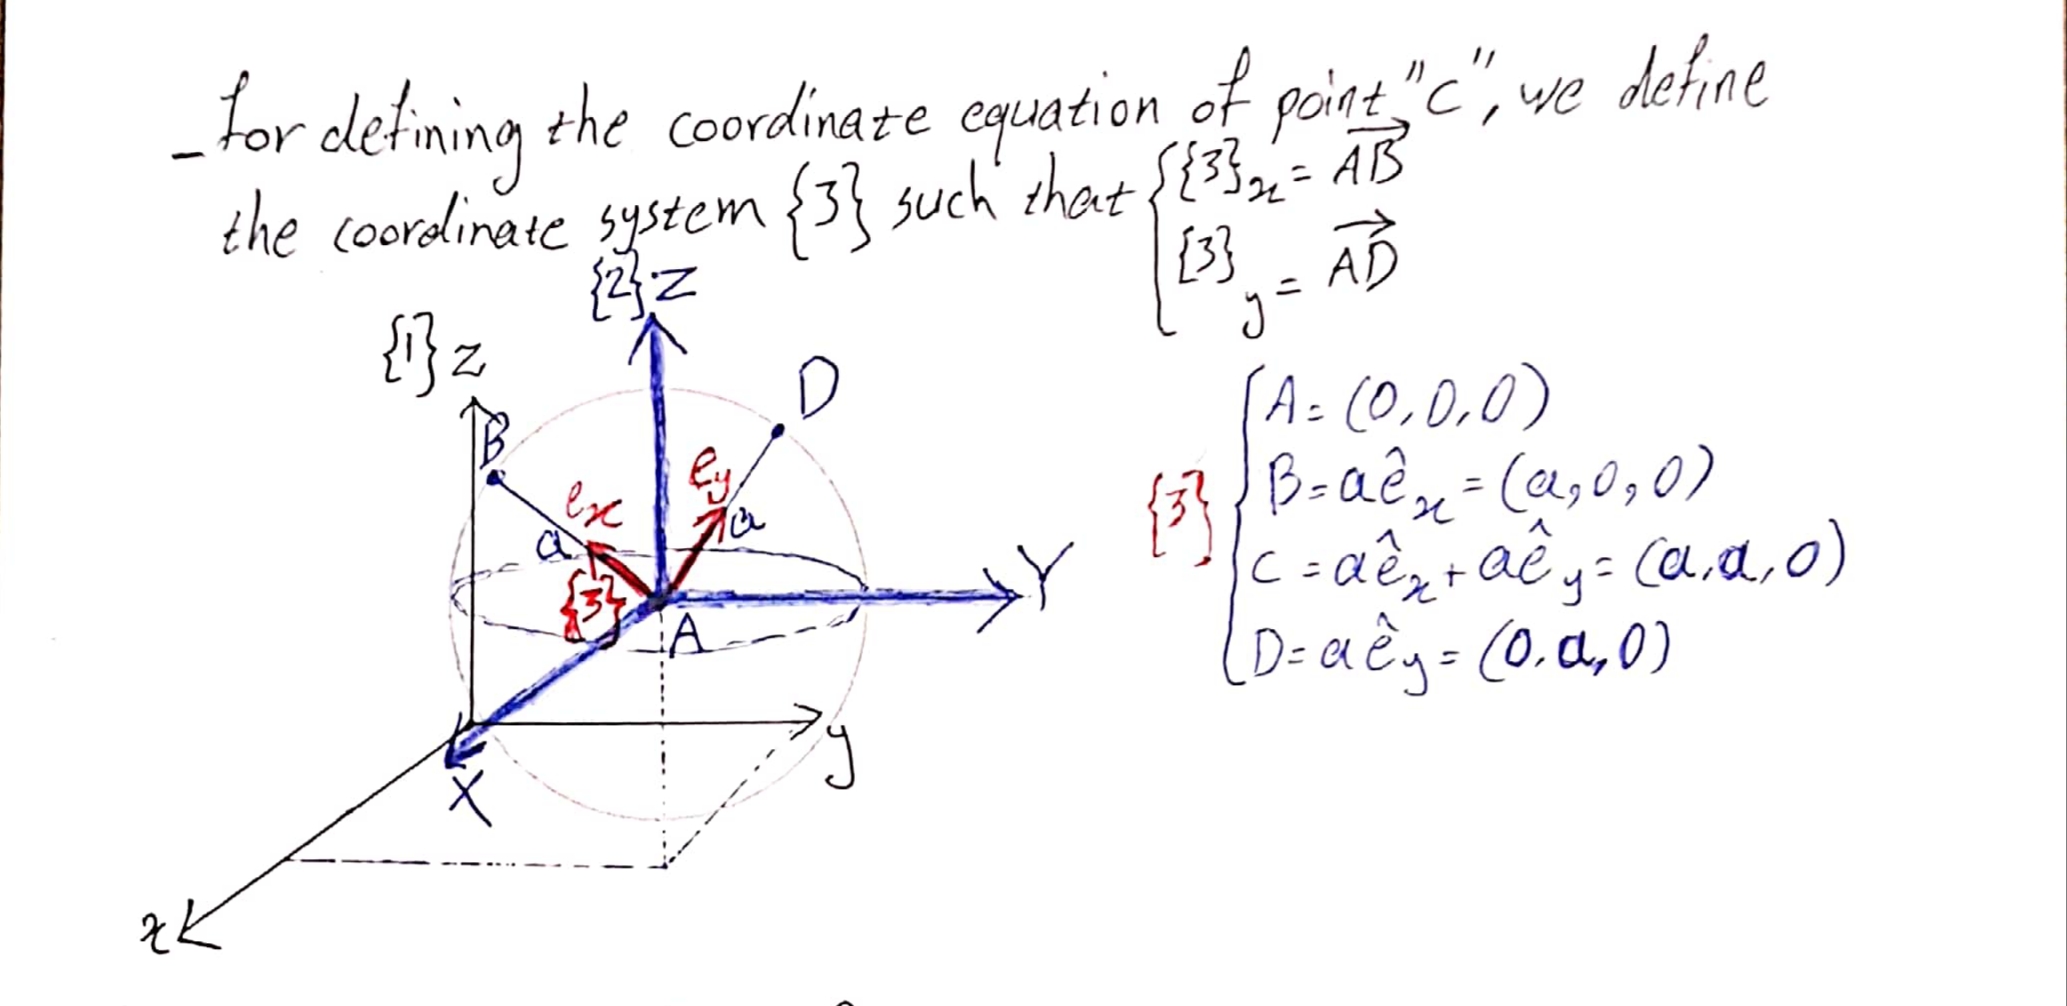 _ for defining the coordinate equation of point "C", we define
the coordinate system {3} such that { {3}x = AB→
{3}y = AD→
{2} Z
{1} z
D
B
A = (0, 0, 0)
ex
ey
{3} B = aêx = (a, 0, 0)
a
a
Y
{3}
C = aêx + aêy = (a, a, 0)
A
D = aêy = (0, a, 0)
y
X
x